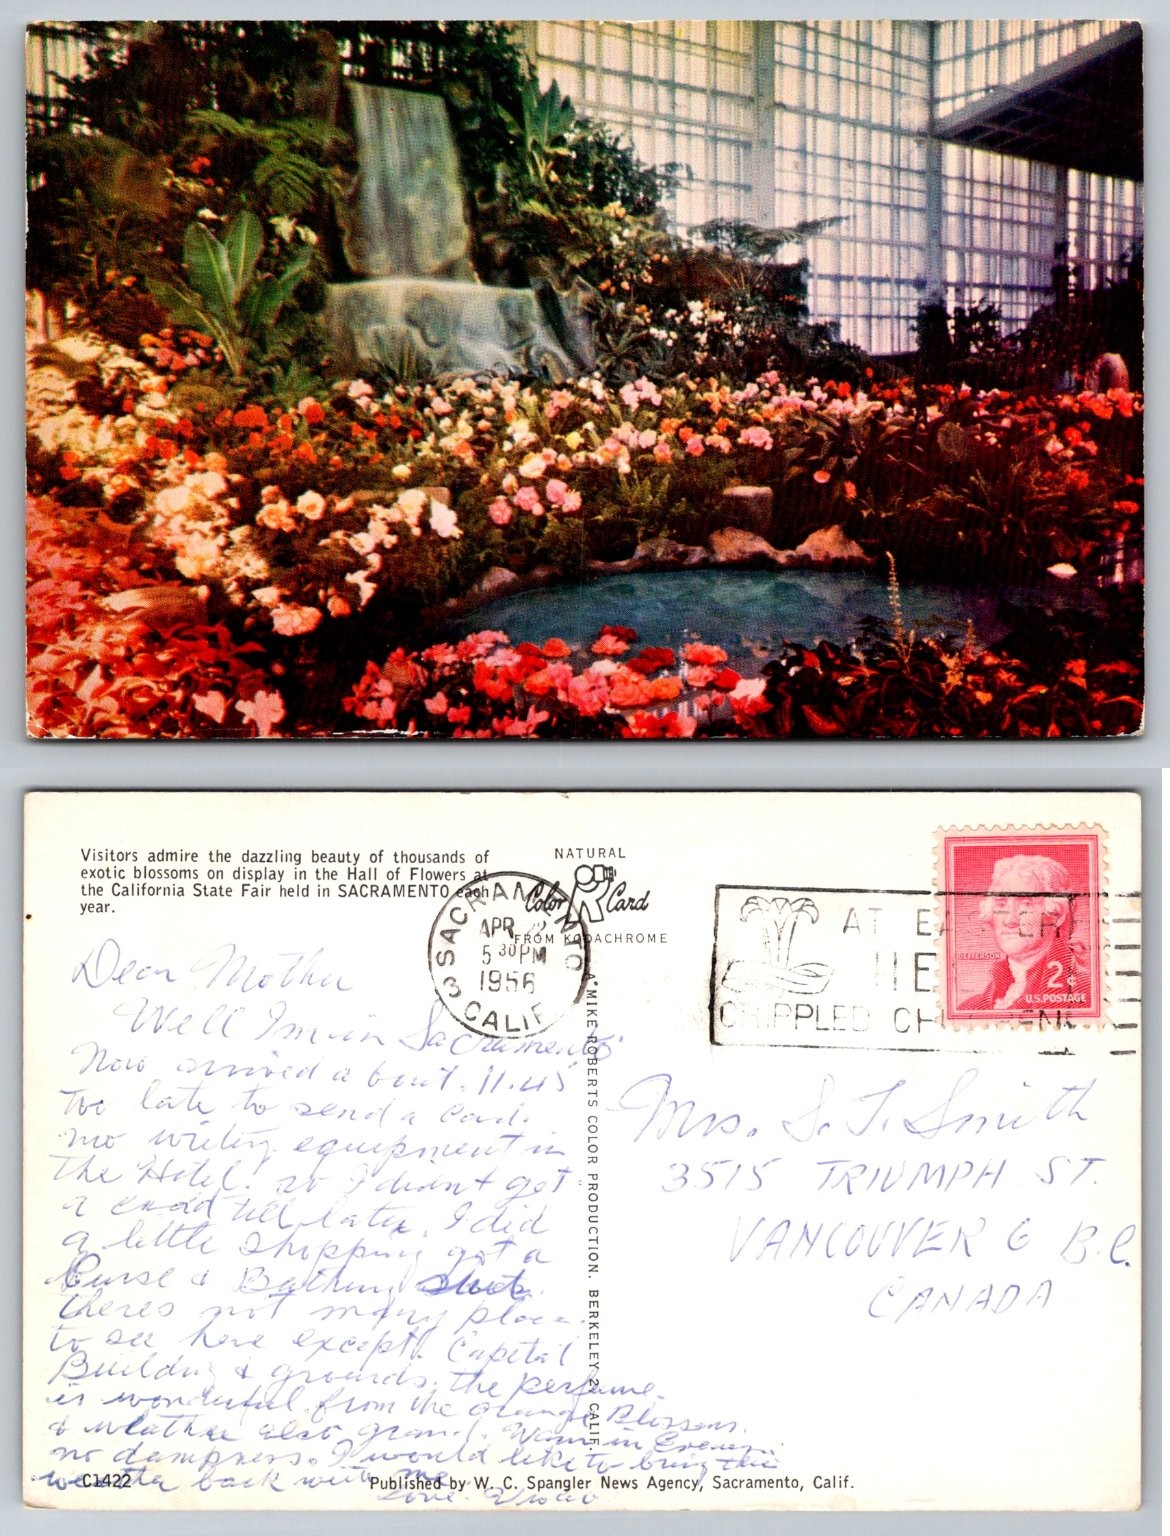 Visitors admire the dazzling beauty of thousands of
exotic blossoms on display in the Hall of Flowers at
the California State Fair held in SACRAMENTO each
year.
NATURAL
Color Card
FROM KODACHROME
SACRAMENTO
APR
5 30 PM
1956
3 CALIF
AT EASTER
HE
CRIPPLED CHILDREN
JEFFERSON
2¢
U.S. POSTAGE
Dear Mother
Well Im in Sacramento
Now arrived a bout. 11.45
Too late to send a card.
no writing equipment in
the Hotel. so I didn't get
a card till later. I did
a little shopping got a
Purse & Bathing
theres not many place.
to see here except. Capital
Building & grounds. the perfume.
is wonderful from the orange Blossoms.
& weather also grand. Warm in
no dampness. I would like to bring this
weather back with me
Love.
A MIKE ROBERTS COLOR PRODUCTION. BERKELEY 2, CALIF.
Mrs. S. T. Smith
3515 TRIUMPH ST.
VANCOUVER 6 B.C.
CANADA
C1422
Published by W. C. Spangler News Agency, Sacramento, Calif.